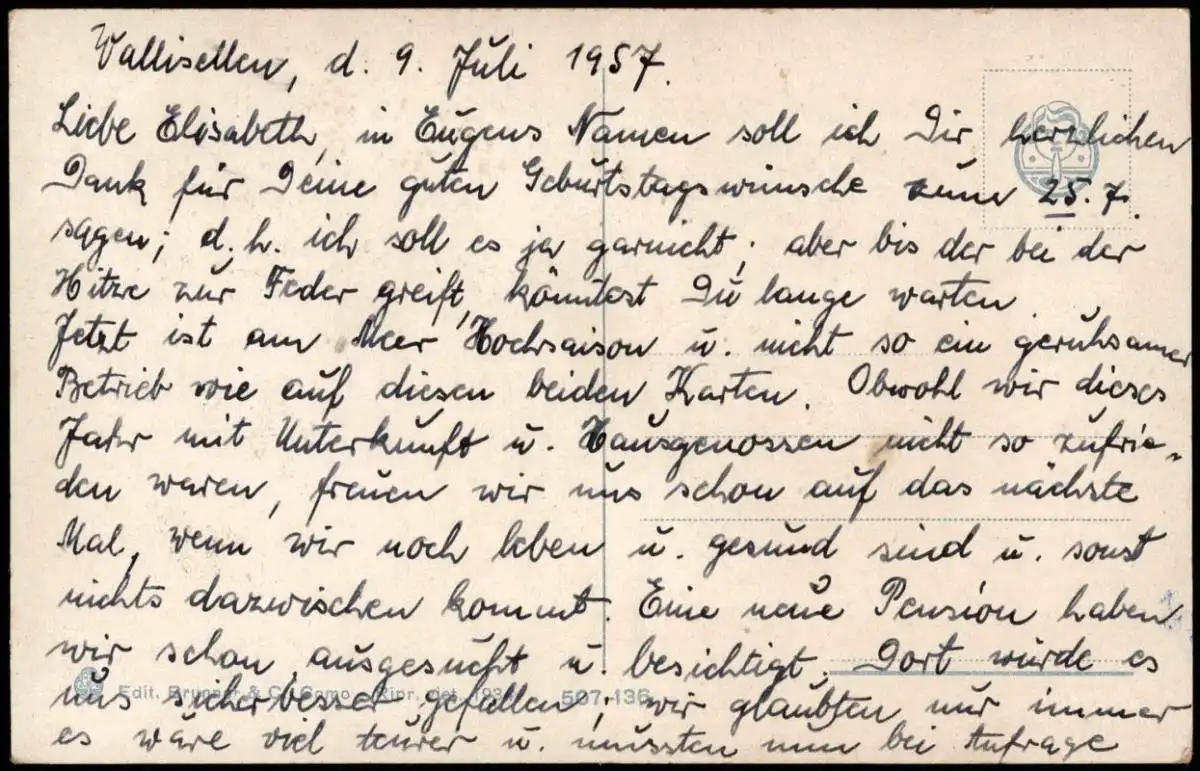 Wallisellen, d. 9. Juli 1957.
Liebe Elisabeth, in Eugens Namen soll ich Dir herzlichen
Dank für Deine guten Geburtstagswünsche zum 25.7.
sagen; d.h. ich soll es ja garnicht, aber bis der bei der
Hitze zur Feder greift, könntest Du lange warten.
Jetzt ist am Meer Hochsaison u. nicht so ein geruhsamer
Betrieb wie auf diesen beiden Karten. Obwohl wir dieses
Jahr mit Unterkunft u. Hausgenossen nicht so zufrie-
den waren, freuen wir uns schon auf das nächste
Mal, wenn wir noch leben u. gesund sind u. sonst
nichts dazwischen kommt. Eine neue Pension haben
wir schon ausgesucht u. besichtigt. Dort würde es
uns sicher besser gefallen; wir glaubten nur immer
Edit. Brunner & C. Como - Ripr. 597-136
es wäre viel teurer u. mussten nun bei Anfrage